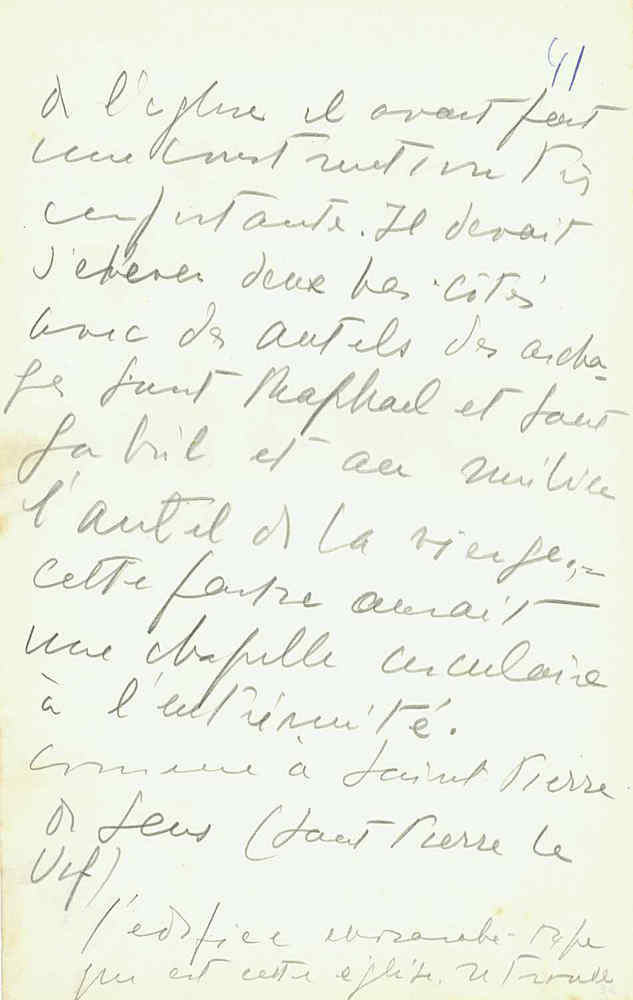 41
de l'église il avait fait
une construction très
importante. Il devait
s'élever deux bas-côtés
avec des autels des archa-
ges saint Raphael et saint
Gabriel et au milieu
l'autel de la vierge.
cette partie aurait
une chapelle circulaire
à l'extrémité.
comme à Saint Pierre
de Sens (Saint Pierre le
Vif)
l'édifice
que est cette église. se trouve